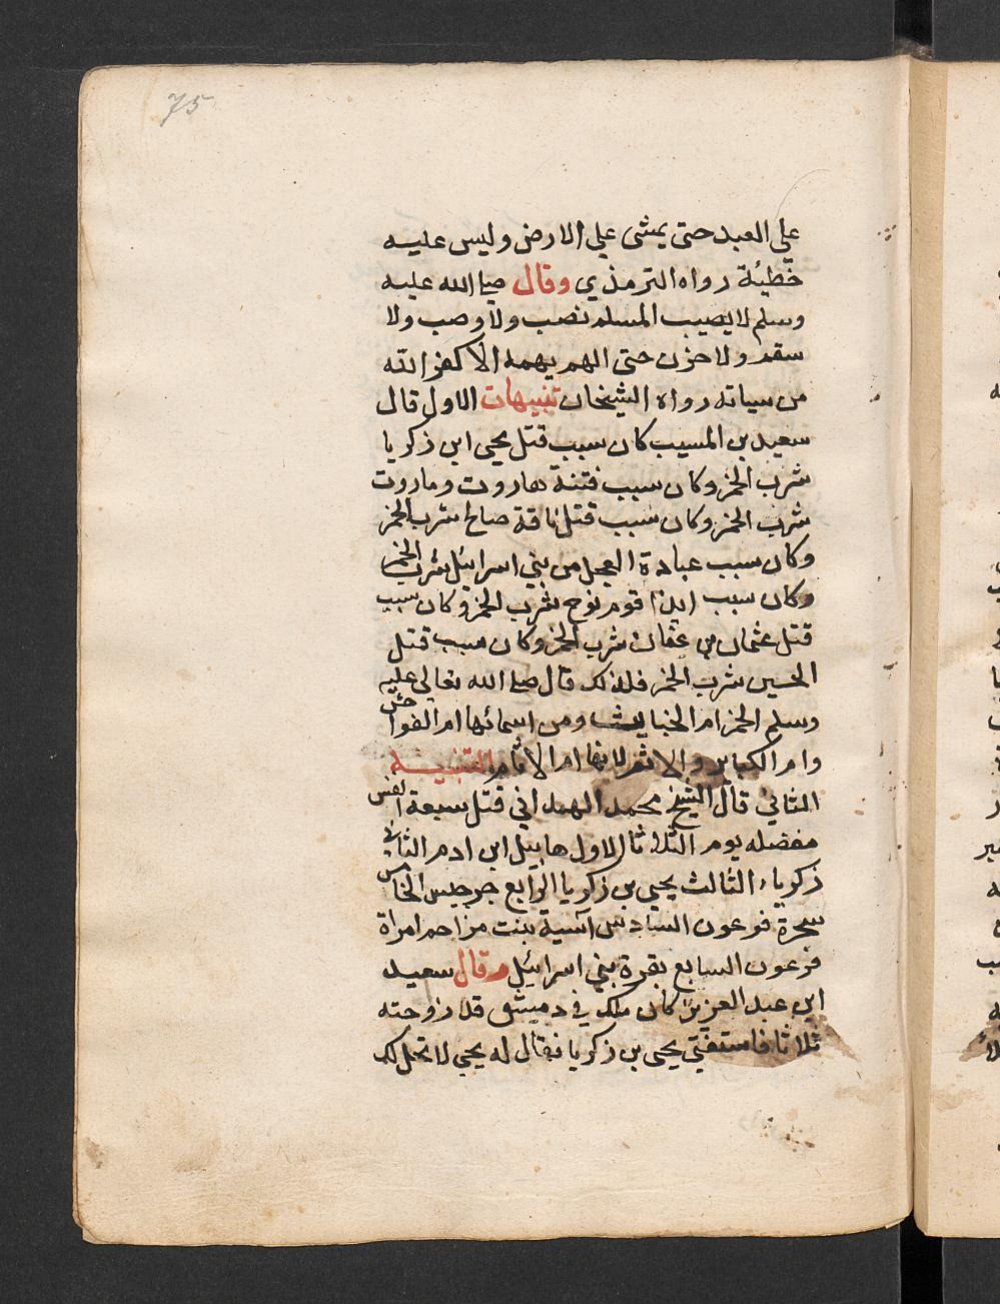 75
علي العبد حتى يمشى علي الارض وليس عليه
خطيئة رواه الترمذي وقال صلى الله عليه
وسلم لا يصيب المسلم نصب ولا وصب ولا
سقم ولا حزن حتى الهم يهمه الا كفر الله
من سياته رواه الشيخان تنبيهات الاول قال
سعيد بن المسيب كان سبب قتل يحيى ابن زكريا
شرب الخمر وكان سبب فتنة هاروت وماروت
شرب الخمر وكان سبب قتل ناقة صالح شرب الخمر
وكان سبب عبادة العجل من بني اسرائيل شرب الخمر
وكان سبب ايذا قوم نوح شرب الخمر وكان سبب
قتل عثمان بن عفان شرب الخمر وكان سبب قتل
الحسين شرب الخمر فلذلك قال صلى الله تعالى عليه
وسلم الخمر ام الخبايث ومن اسمائها ام الفواحش
وام الكباير والاثم لانها ام الاثام التنبيه
الثاني قال الشيخ محمد الهمداني قتل سبعة انفس
مفضله يوم الثلاثا الاول هابيل ابن ادم الثاني
زكرياء الثالث يحيى بن زكريا الرابع جرجيس الخامس
سحرة فرعون السادس آسية بنت مزاحم امراة
فرعون السابع بقرة بني اسرائيل وقال سعيد
ابن عبد العزيز كان ملك في دميشق قد زوجته
ثلاثا فاستفتى يحيى بن زكريا فقال له يحيى لا تحل لك